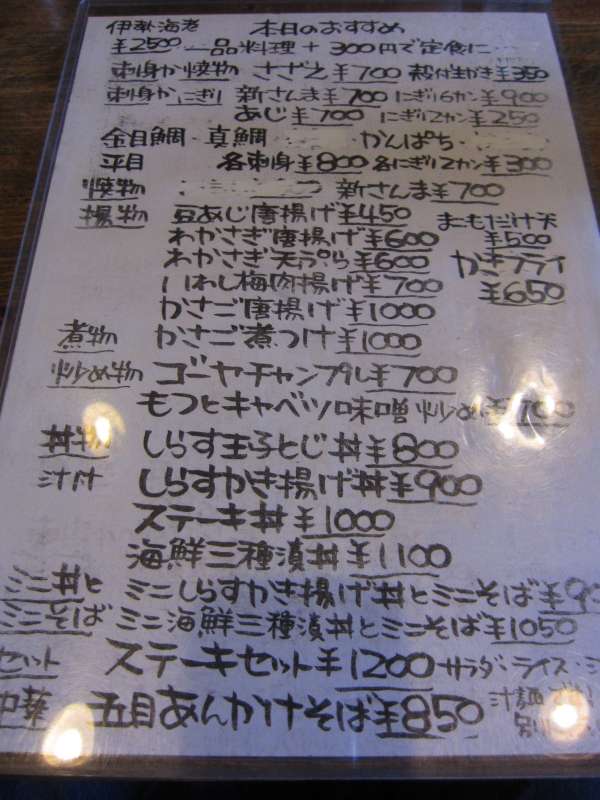 伊勢海老 本日のおすすめ
¥2500 一品料理+300円で定食に…
刺身か焼物 さざえ¥700 殻付生がき¥350
刺身かにぎり 新さんま¥700 にぎり6カン¥900
あじ¥700 にぎり2カン¥250
金目鯛・真鯛 かんぱち
平目 各刺身¥800 各にぎり2カン¥300
焼物 新さんま¥700
揚物 豆あじ唐揚げ¥450 まこもだけ天
わかさぎ唐揚げ¥600 ¥500
わかさぎ天ぷら¥600 かきフライ
いわし梅肉揚げ¥700 ¥650
かさご唐揚げ¥1000
煮物 かさご煮つけ¥1000
炒め物 ゴーヤチャンプル¥700
もつとキャベツ味噌炒め¥700
丼物 しらす玉子とじ丼¥800
汁付 しらすかき揚げ丼¥900
ステーキ丼¥1000
海鮮三種漬丼¥1100
ミニ丼と ミニしらすかき揚げ丼とミニそば
ミニそば ミニ海鮮三種漬丼とミニそば¥1050
セット ステーキセット¥1200 サラダ・ライス・
中華 五目あんかけそば¥850 汁麺